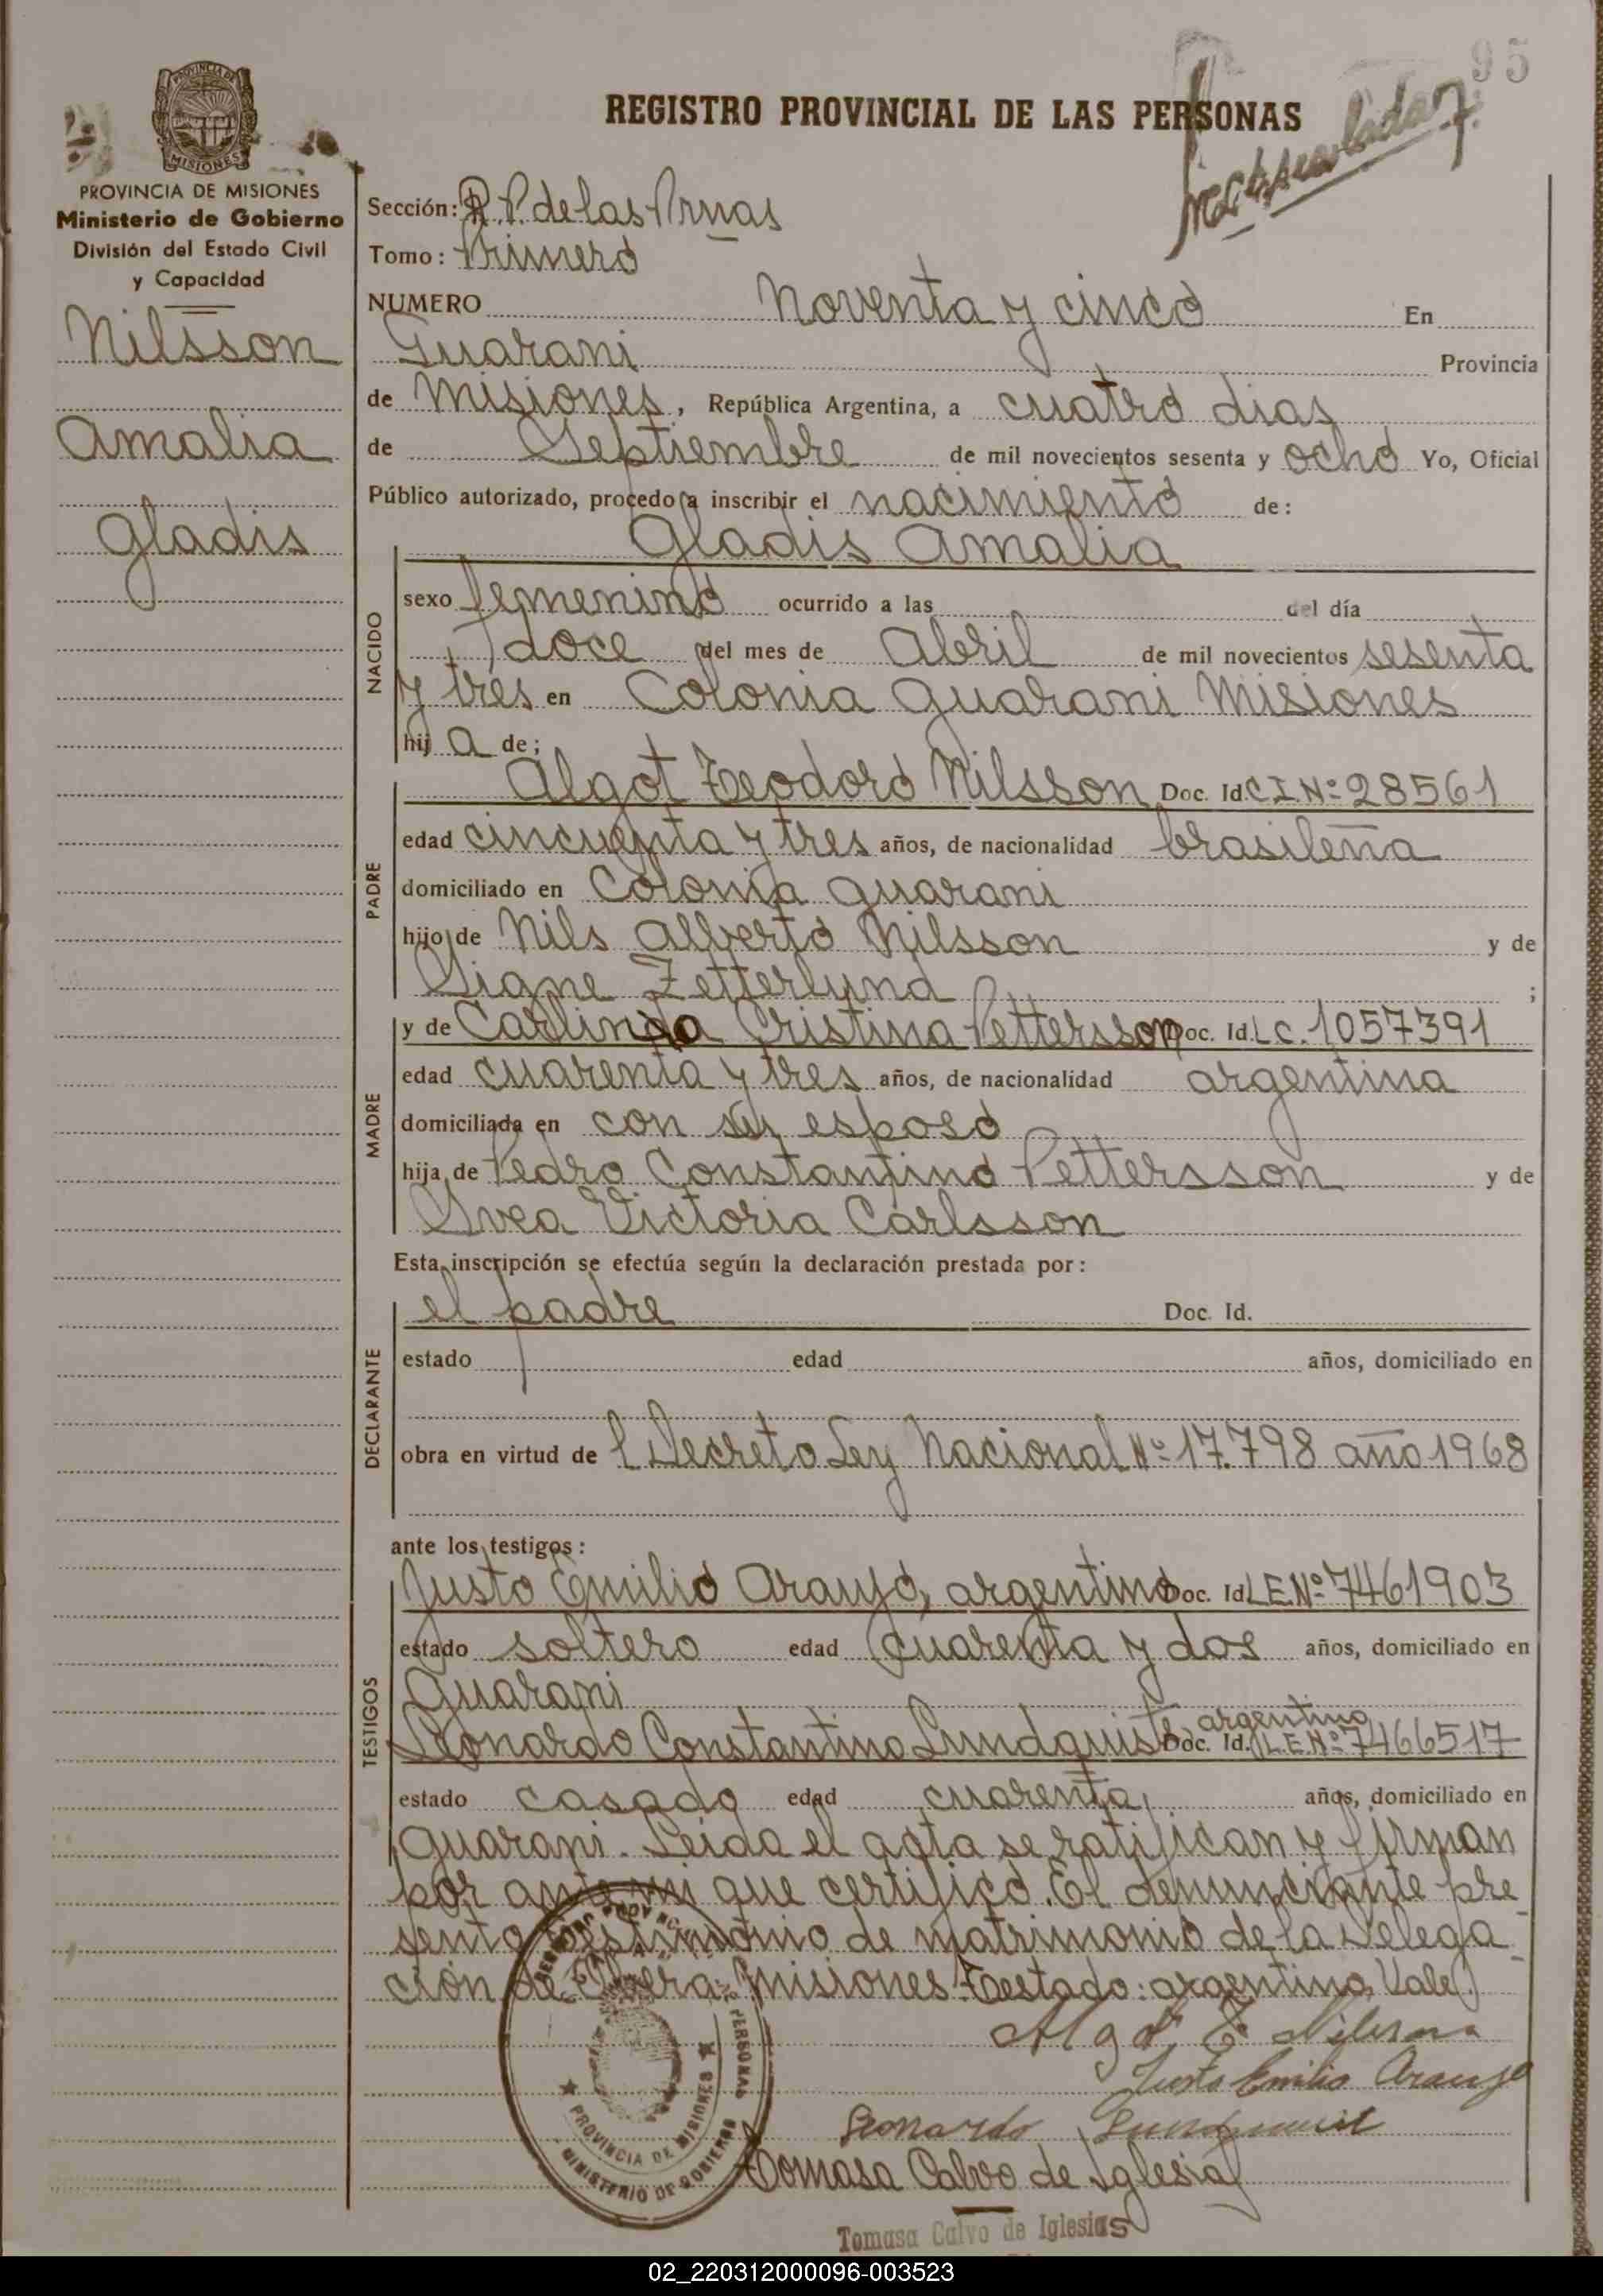 95
REGISTRO PROVINCIAL DE LAS PERSONAS
PROVINCIA DE
MISIONES
PROVINCIA DE MISIONES
Ministerio de Gobierno
División del Estado Civil
y Capacidad
Nilsson
Amalia
Gladis
Sección: R. P. de las Prnas
Tomo: Primero
NUMERO Noventa y cinco En
Guarani Provincia
de Misiones, República Argentina, a cuatro dias
de Septiembre de mil novecientos sesenta y ocho Yo, Oficial
Público autorizado, procedo a inscribir el nacimiento de:
Gladis Amalia
NACIDO
sexo femenino ocurrido a las del día
doce del mes de Abril de mil novecientos sesenta
y tres en Colonia Guarani Misiones
hij a de;
PADRE
Algot Teodoro Nilsson Doc. Id. C I Nº 28561
edad cincuenta y tres años, de nacionalidad brasileña
domiciliado en Colonia Guarani
hijo de Nils Alberto Nilsson y de
Signe Zetterlund ;
MADRE
y de Carlinda Cristina Pettersson Doc. Id. L C. 1057391
edad cuarenta y tres años, de nacionalidad argentina
domiciliada en con su esposo
hija de Pedro Constantino Pettersson y de
Svea Victoria Carlsson
Esta inscripción se efectúa según la declaración prestada por:
DECLARANTE
el padre Doc. Id.
estado edad años, domiciliado en
obra en virtud de l Decreto Ley Nacional Nº 17.798 año 1968
ante los testigos:
TESTIGOS
Justo Emilio Araujo, argentino Doc. Id. L E Nº 7461903
estado soltero edad cuarenta y dos años, domiciliado en
Guarani
argentino
Leonardo Constantino Lundquist Doc. Id. L E Nº 7466517
estado casado edad cuarenta años, domiciliado en
Guarani. Leida el acta se ratifican y firman
por ante mi que certifico. El denunciante pre
sento testimonio de matrimonio de la Delega
ción de Obera Misiones Testado: argentino Vale
Algot T. Nilsson
Justo Emilio Araujo
Leonardo Lundquist
Tomasa Calvo de Iglesias
PROVINCIA DE MISIONES
MINISTERIO DE GOBIERNO
Tomasa Calvo de Iglesias
02_220312000096-003523